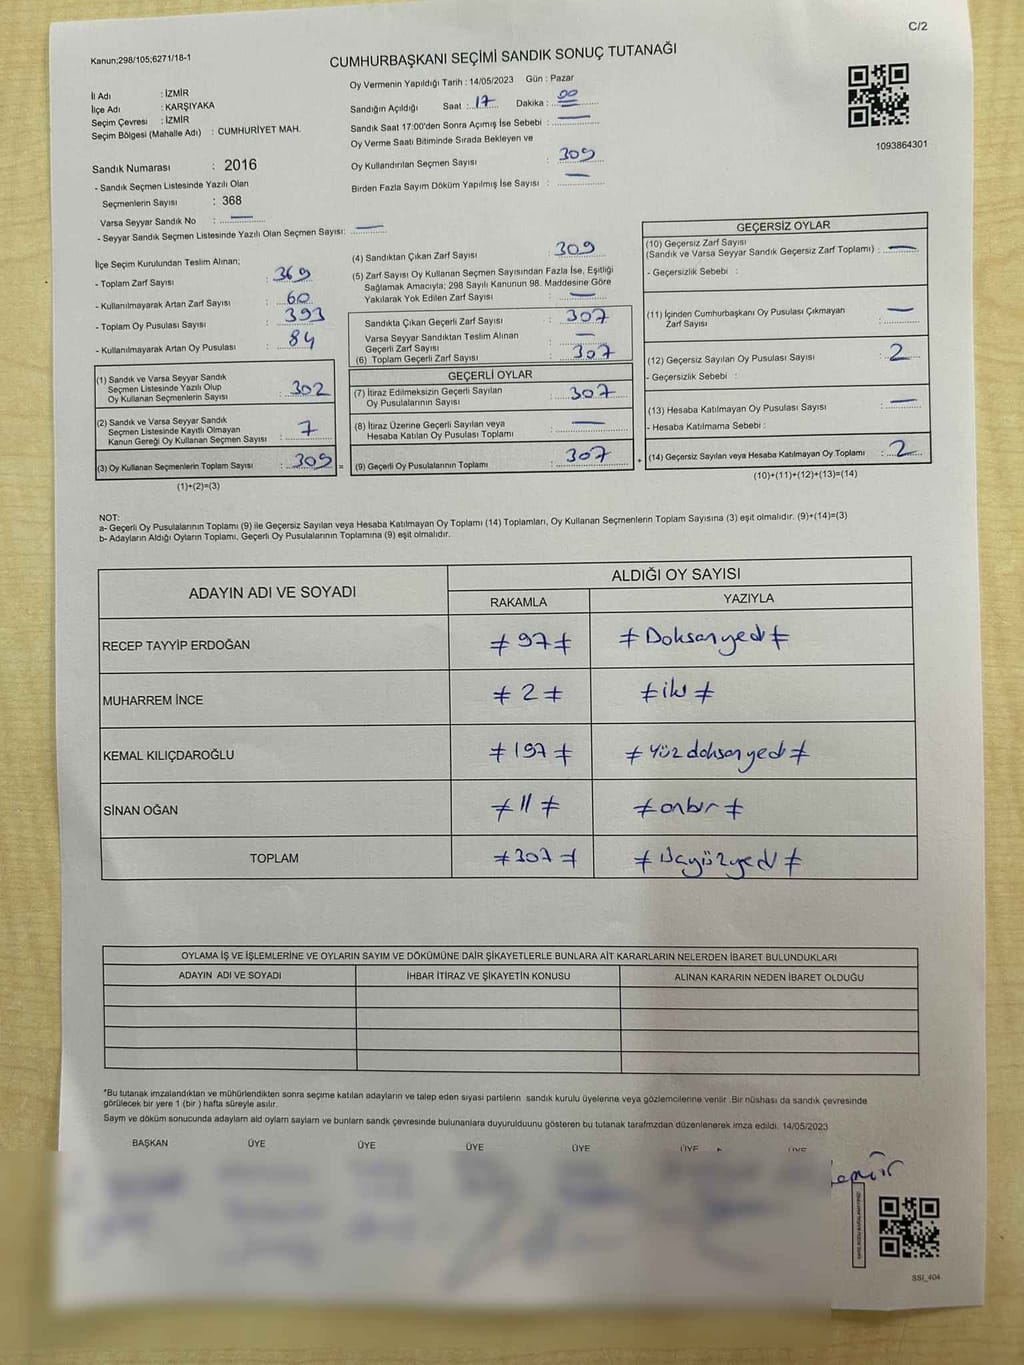 C/2
Kanun;298/105;6271/18-1
CUMHURBAŞKANI SEÇİMİ SANDIK SONUÇ TUTANAĞI
İl Adı : İZMİR
İlçe Adı : KARŞIYAKA
Seçim Çevresi : İZMİR
Seçim Bölgesi (Mahalle Adı) : CUMHURİYET MAH.
Sandık Numarası : 2016
- Sandık Seçmen Listesinde Yazılı Olan
Seçmenlerin Sayısı : 368
Varsa Seyyar Sandık No : —
- Seyyar Sandık Seçmen Listesinde Yazılı Olan Seçmen Sayısı: —
Oy Vermenin Yapıldığı Tarih : 14/05/2023 Gün : Pazar
Sandığın Açıldığı Saat : 17 Dakika : 00
Sandık Saat 17:00'den Sonra Açımış İse Sebebi : —
Oy Verme Saati Bitiminde Sırada Bekleyen ve
Oy Kullandırılan Seçmen Sayısı : 309
Birden Fazla Sayım Döküm Yapılmış İse Sayısı : —
1093864301
İlçe Seçim Kurulundan Teslim Alınan;
- Toplam Zarf Sayısı : 369
- Kullanılmayarak Artan Zarf Sayısı : 60
- Toplam Oy Pusulası Sayısı : 393
- Kullanılmayarak Artan Oy Pusulası : 84
(1) Sandık ve Varsa Seyyar Sandık
Seçmen Listesinde Yazılı Olup
Oy Kullanan Seçmenlerin Sayısı : 302
(2) Sandık ve Varsa Seyyar Sandık
Seçmen Listesinde Kayıtlı Olmayan
Kanun Gereği Oy Kullanan Seçmen Sayısı : 7
(3) Oy Kullanan Seçmenlerin Toplam Sayısı : 309 =
(1)+(2)=(3)
(4) Sandıktan Çıkan Zarf Sayısı : 309
(5) Zarf Sayısı Oy Kullanan Seçmen Sayısından Fazla İse, Eşitliği
Sağlamak Amacıyla; 298 Sayılı Kanunun 98. Maddesine Göre
Yakılarak Yok Edilen Zarf Sayısı : —
Sandıkta Çıkan Geçerli Zarf Sayısı : 307
Varsa Seyyar Sandıktan Teslim Alınan
Geçerli Zarf Sayısı : —
(6) Toplam Geçerli Zarf Sayısı : 307
GEÇERLİ OYLAR
(7) İtiraz Edilmeksizin Geçerli Sayılan
Oy Pusulalarının Sayısı : 307
(8) İtiraz Üzerine Geçerli Sayılan veya
Hesaba Katılan Oy Pusulası Toplamı : —
(9) Geçerli Oy Pusulalarının Toplamı : 307 +
GEÇERSİZ OYLAR
(10) Geçersiz Zarf Sayısı
(Sandık ve Varsa Seyyar Sandık Geçersiz Zarf Toplamı) : —
- Geçersizlik Sebebi :
(11) İçinden Cumhurbaşkanı Oy Pusulası Çıkmayan
Zarf Sayısı : —
(12) Geçersiz Sayılan Oy Pusulası Sayısı : 2
- Geçersizlik Sebebi :
(13) Hesaba Katılmayan Oy Pusulası Sayısı : —
- Hesaba Katılmama Sebebi :
(14) Geçersiz Sayılan veya Hesaba Katılmayan Oy Toplamı : 2
(10)+(11)+(12)+(13)=(14)
NOT:
a- Geçerli Oy Pusulalarının Toplamı (9) ile Geçersiz Sayılan veya Hesaba Katılmayan Oy Toplamı (14) Toplamları, Oy Kullanan Seçmenlerin Toplam Sayısına (3) eşit olmalıdır. (9)+(14)=(3)
b- Adayların Aldığı Oyların Toplamı, Geçerli Oy Pusulalarının Toplamına (9) eşit olmalıdır.
ADAYIN ADI VE SOYADI ALDIĞI OY SAYISI
RAKAMLA YAZIYLA
RECEP TAYYİP ERDOĞAN ≠ 97 ≠ ≠ Doksanyedi ≠
MUHARREM İNCE ≠ 2 ≠ ≠ iki ≠
KEMAL KILIÇDAROĞLU ≠ 197 ≠ ≠ Yüz doksanyedi ≠
SİNAN OĞAN ≠ 11 ≠ ≠ onbir ≠
TOPLAM ≠ 307 ≠ ≠ Üçyüzyedi ≠
OYLAMA İŞ VE İŞLEMLERİNE VE OYLARIN SAYIM VE DÖKÜMÜNE DAİR ŞİKAYETLERLE BUNLARA AİT KARARLARIN NELERDEN İBARET BULUNDUKLARI
ADAYIN ADI VE SOYADI İHBAR İTİRAZ VE ŞİKAYETİN KONUSU ALINAN KARARIN NEDEN İBARET OLDUĞU
*Bu tutanak imzalandıktan ve mühürlendikten sonra seçime katılan adayların ve talep eden siyasi partilerin sandık kurulu üyelerine veya gözlemcilerine verilir .Bir nüshası da sandık çevresinde
görülecek bir yere 1 (bir ) hafta süreyle asılır.
Sayım ve döküm sonucunda adayların ald oyların sayları ve bunların sandk çevresinde bulunanlara duyurulduunu gösteren bu tutanak tarafmzdan düzenlenerek imza edildi. 14/05/2023
BAŞKAN ÜYE ÜYE ÜYE ÜYE ÜYE ÜYE
SSI_404